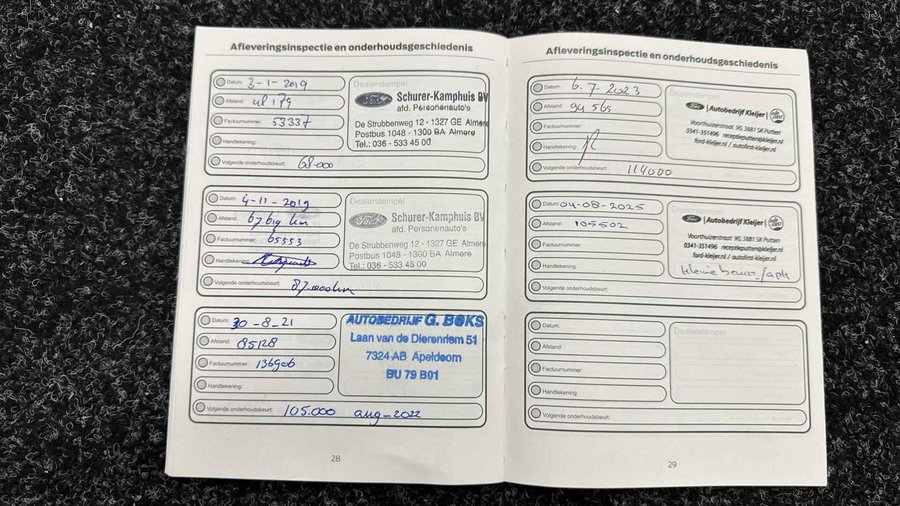 Afleveringsinspectie en onderhoudsgeschiedenis
Datum: 3-1-2019
Afstand: 48179
Factuurnummer: 53337
Handtekening:
Volgende onderhoudsbeurt: 68.000
Dealerstempel
Ford Schurer-Kamphuis BV
afd. Personenauto's
De Strubbenweg 12 - 1327 GE Almere
Postbus 1048 - 1300 BA Almere
Tel.: 036 - 533 45 00
Datum: 4-11-2019
Afstand: 67619 km
Factuurnummer: 65553
Handtekening:
Volgende onderhoudsbeurt: 87.000km
Dealerstempel
Ford Schurer-Kamphuis BV
afd. Personenauto's
De Strubbenweg 12 - 1327 GE Almere
Postbus 1048 - 1300 BA Almere
Tel.: 036 - 533 45 00
Datum: 30-8-21
Afstand: 85128
Factuurnummer: 136906
Handtekening:
Volgende onderhoudsbeurt: 105.000 aug-2022
AUTOBEDRIJF G. BOKS
Laan van de Dierenriem 51
7324 AB Apeldoorn
BU 79 B01
28
Afleveringsinspectie en onderhoudsgeschiedenis
Datum: 6-7-2023
Afstand: 94565
Factuurnummer:
Handtekening:
Volgende onderhoudsbeurt: 114000
Dealerstempel
Ford | Autobedrijf Kleijer |
Voorthuizerstraat 90, 3881 SK Putten
0341-351496 receptieputten@kleijer.nl
ford-kleijer.nl / autofirst-kleijer.nl
Datum: 04-08-2025
Afstand: 105502
Factuurnummer:
Handtekening:
Volgende onderhoudsbeurt:
Dealerstempel
Ford | Autobedrijf Kleijer |
Voorthuizerstraat 90, 3881 SK Putten
0341-351496 receptieputten@kleijer.nl
ford-kleijer.nl / autofirst-kleijer.nl
kleine beurt / apk
Datum:
Afstand:
Factuurnummer:
Handtekening:
Volgende onderhoudsbeurt:
Dealerstempel
29